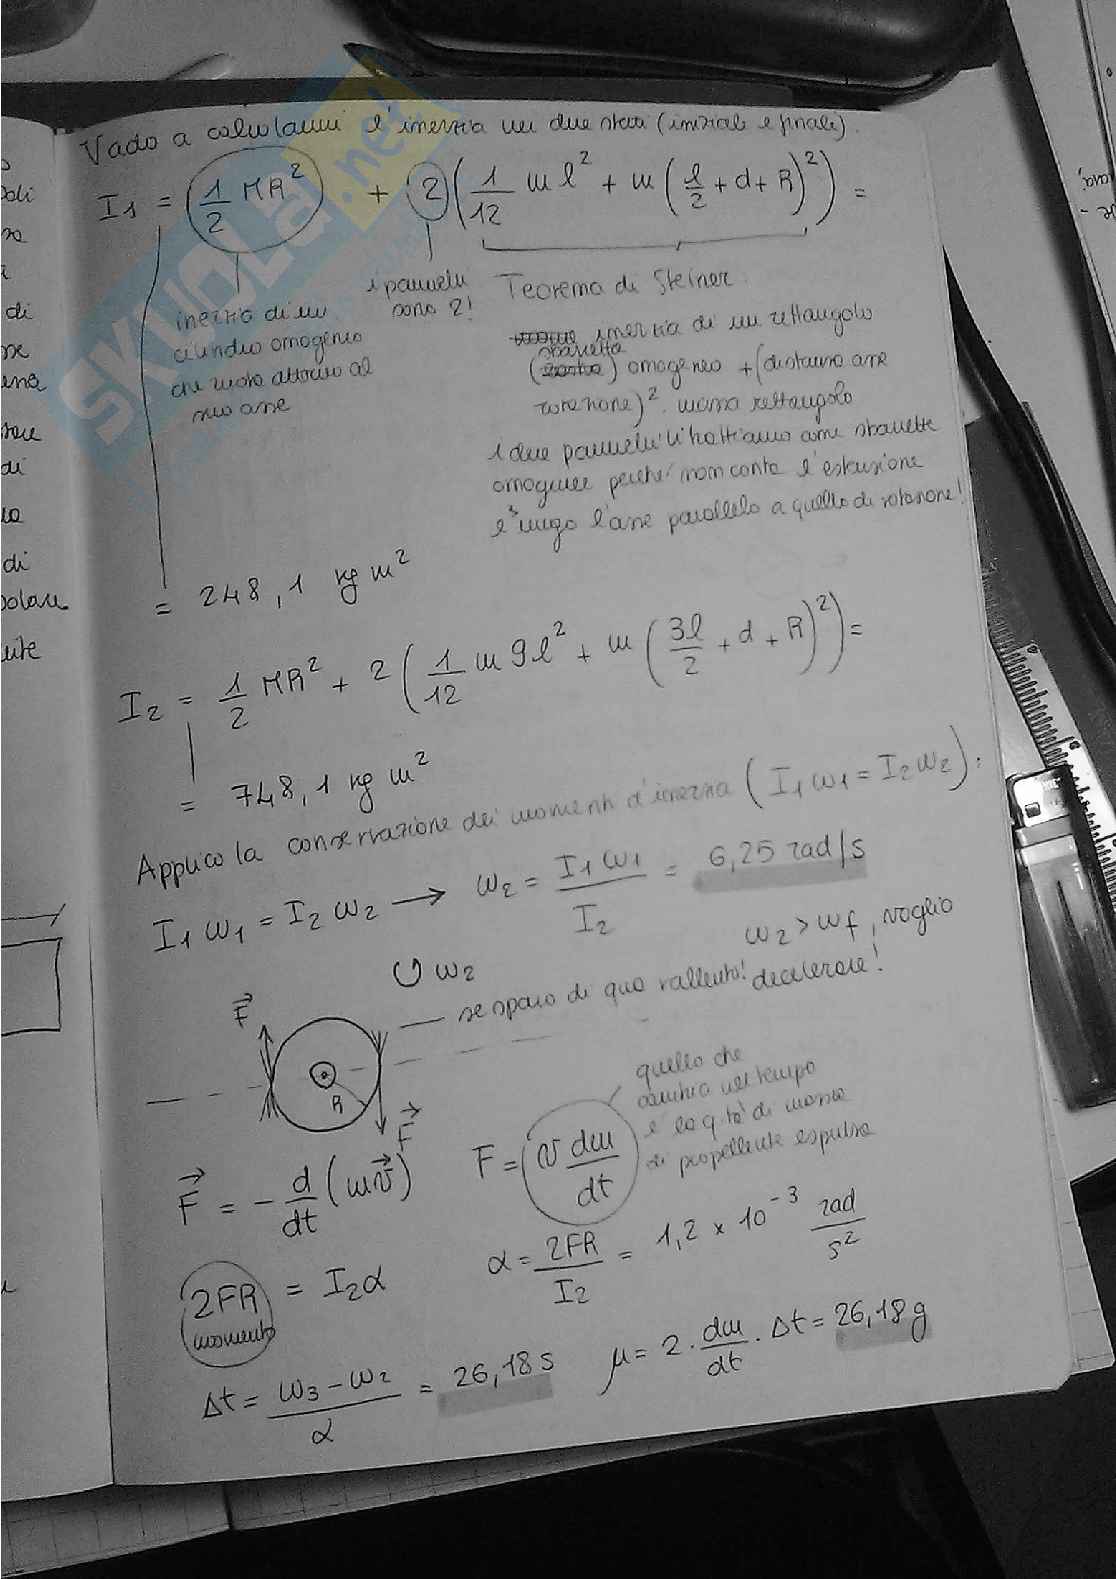 Vado a calcolarmi l'inerzia nei due stati (iniziale e finale).
I1 = (1/2 MR²) + 2 (1/12 m l² + m (l/2 + d + R)²) =
inerzia di un
cilindro omogeneo
che ruota attorno al
suo asse
i pannelli
sono 2!
Teorema di Steiner:
inerzia di un rettangolo
sbarretta
( ) omogeneo + (distanza asse
rotazione)². massa rettangolo
i due pannelli li trattiamo come sbarrette
omogenee perché non conta l'estensione
lungo l'asse parallelo a quello di rotazione!
= 248,1 kg m²
I2 = 1/2 MR² + 2 (1/12 m 9l² + m (3l/2 + d + R)²) =
= 748,1 kg m²
Applico la conservazione dei momenti d'inerzia (I1 ω1 = I2 ω2):
I1 ω1 = I2 ω2 → ω2 = I1 ω1 / I2 = 6,25 rad/s
ω2 > ωf, voglio
decelerare!
↺ ω2
se sparo di qua rallento!
F
R
F
quello che
cambia nel tempo
è la q.tà di massa
di propellente espulsa
F = - d/dt (mv)
F = v dm/dt
2FR = I2 α
momento
α = 2FR / I2 = 1,2 × 10⁻³ rad/s²
Δt = ω3 - ω2 / α = 26,18 s
μ = 2 · dm/dt · Δt = 26,18 g
SKUOLA.net